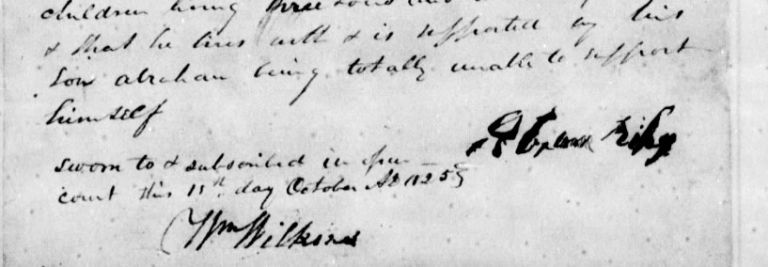 children living
& that he lives with & is supported by his
Son abraham being totally unable to support
himself
sworn to & subscribed in open
court this 11th day October AD 1825
Wm Wilkins